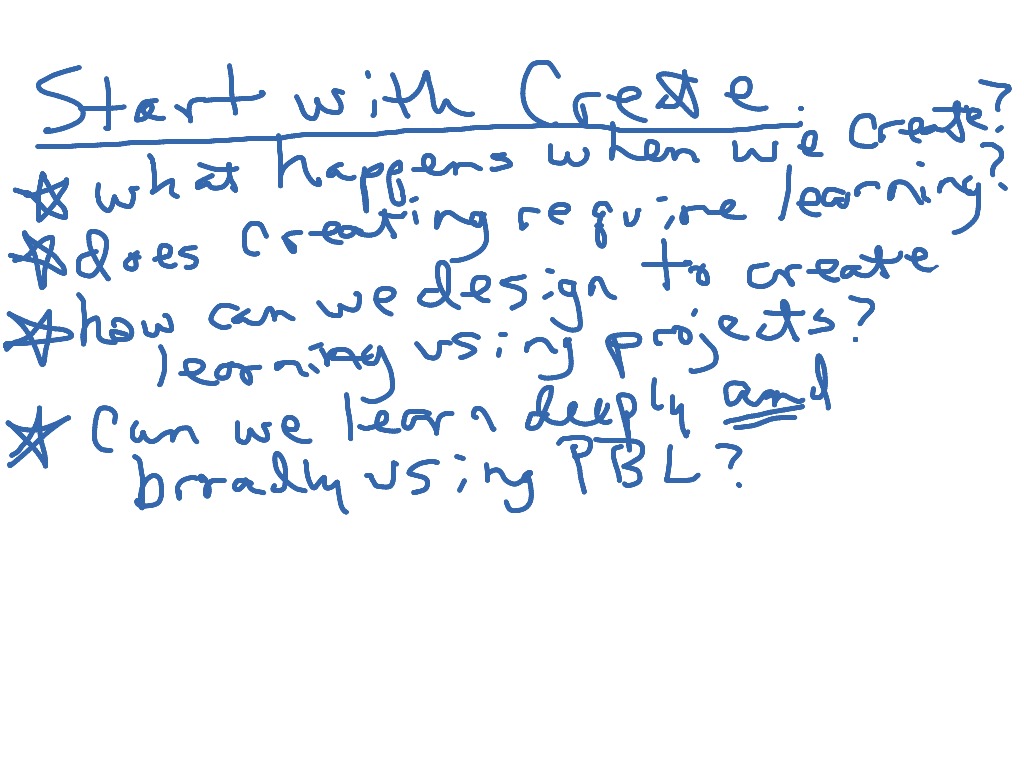 Start with Create.
what happens when we create?
does creating require learning?
how can we design to create
learning using projects?
Can we learn deeply and
broadly using PBL?